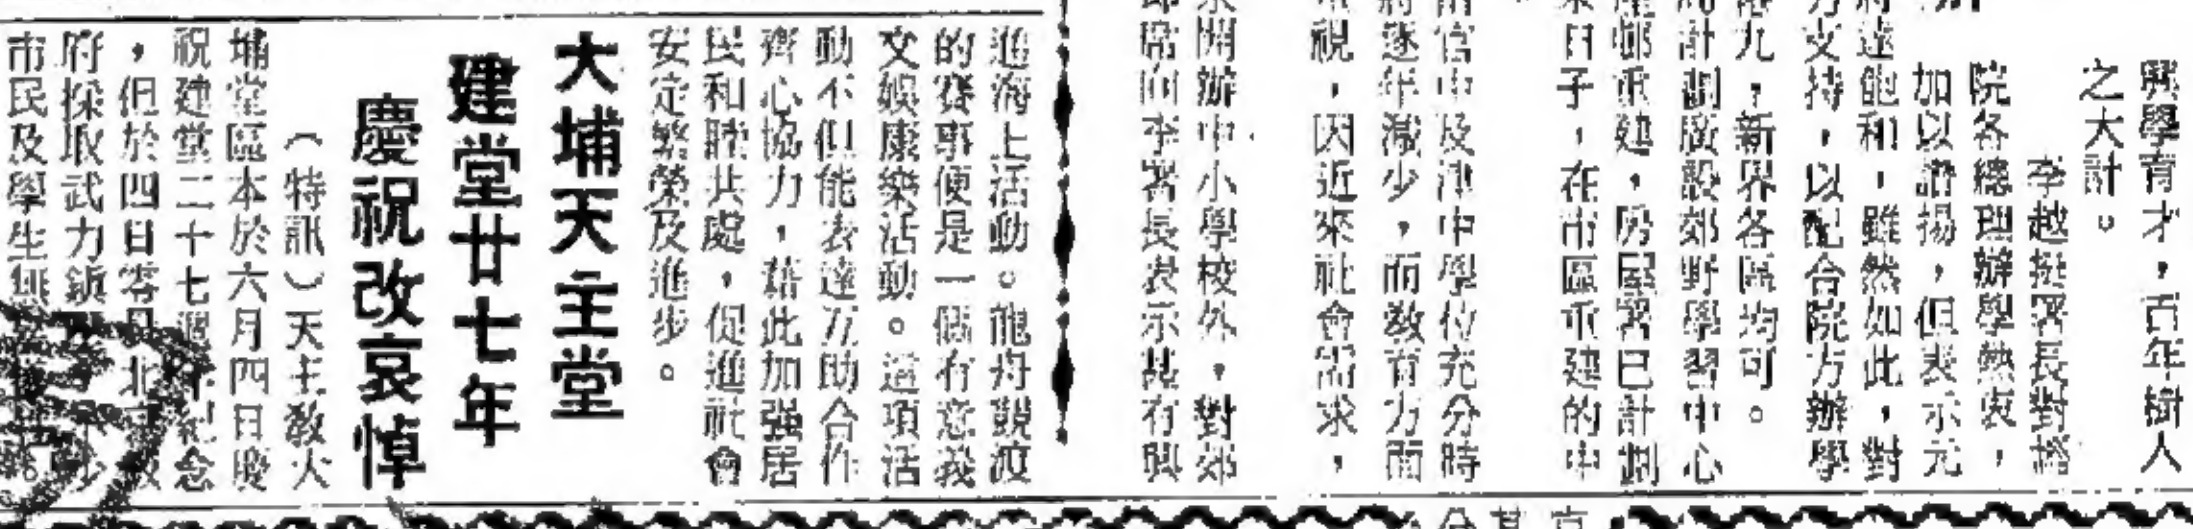 興學育才，百年樹人
之大計。
李越挺署長對
院各總理辦學熱衷，
加以讚揚，但表示元
能和，雖然如此，對
方支持，以配合院方辦學
九，新界各區均可。
計劃廣設郊野學習中心
邨重建，房屋署已計劃
日子，在市區重建的中
官中及津中中學位充分時
逐年減少，而教育方面
視，因近來社會需求，
開辦中小學校外，對郊
席向李署長表示甚有興
進海上活動。龍舟競渡
的賽事便是一個有意義
文娛康樂活動。這項活
動不但能表達互助合作
齊心協力，藉此加强居
民和睦共處，促進社會
安定繁榮及進步。
大埔天主堂
建堂廿七年
慶祝改哀悼
（特訊）天主教大
埔堂區本於六月四日慶
祝建堂二十七週年紀念
，但於四日零
府採取武力鎮
市民及學生無